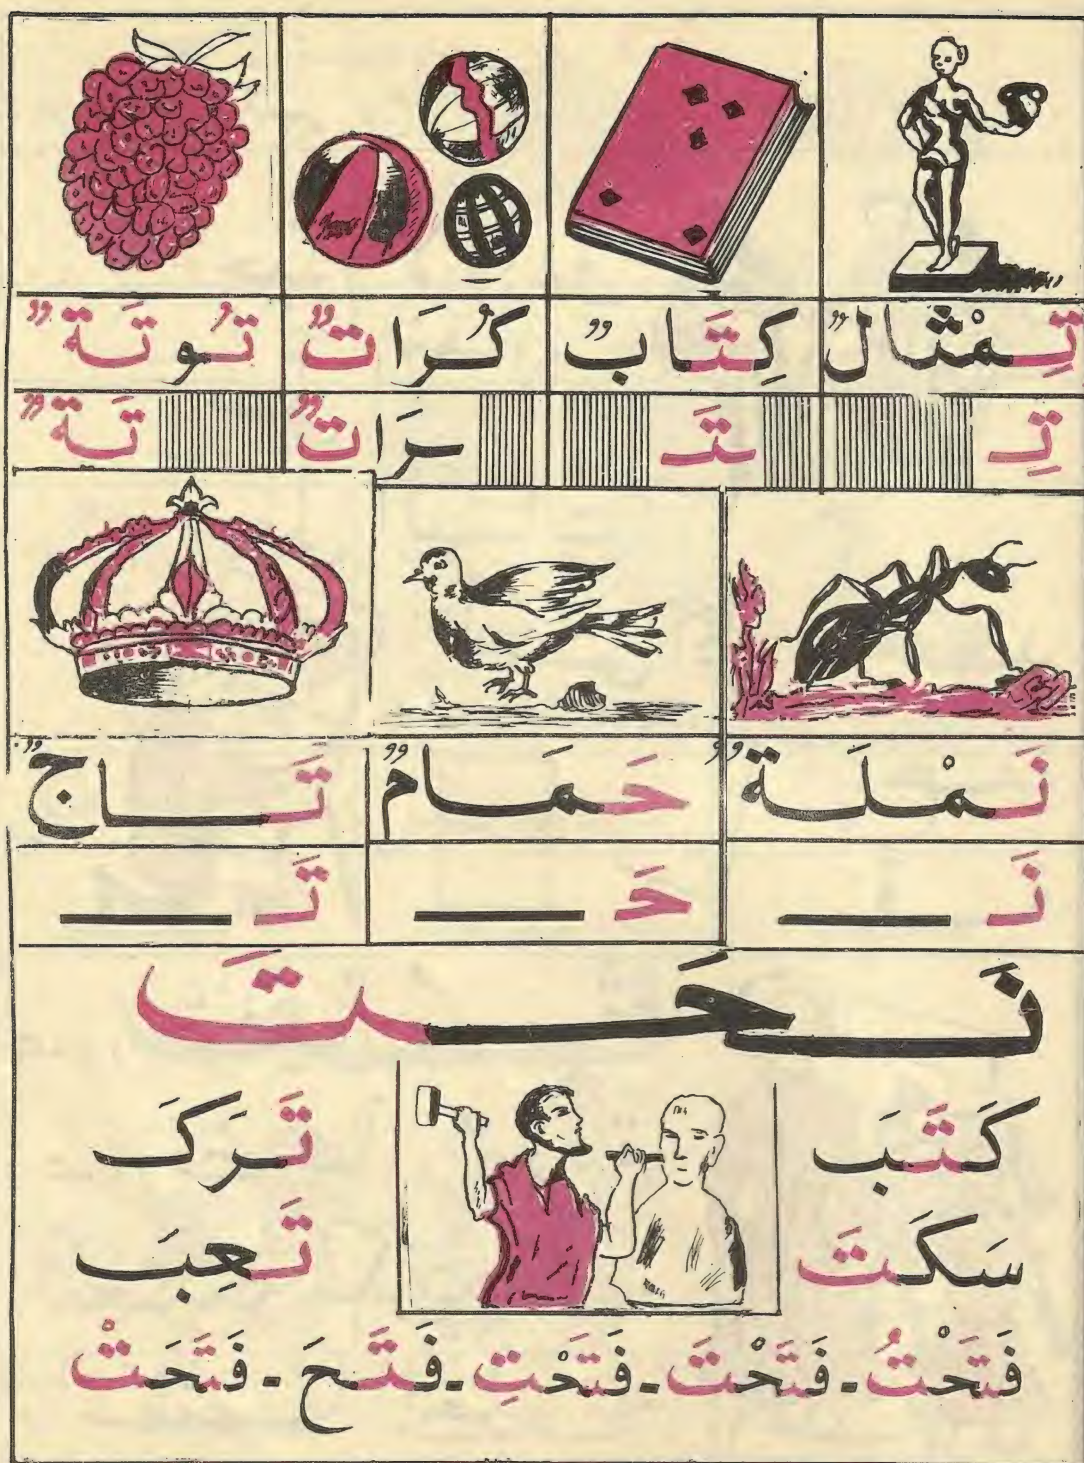 تِمْثَالٌ كِتَابٌ كُرَاتٌ تُوتَةٌ
تِـ ـتَـ ـرَاتٌ ـتَةٌ
نَمْلَةٌ حَمَامٌ تَاجٌ
نَـ حَـ تَـ
نَحَتَ
كَتَبَ تَرَكَ
سَكَتَ تَعِبَ
فَتَحْتُ - فَتَحْتَ - فَتَحْتِ - فَتَحَ - فَتَحَتْ